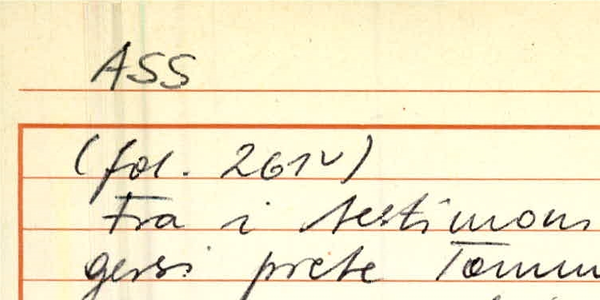 ASS
(fol. 261v)
Fra i testimon
prete Tomm